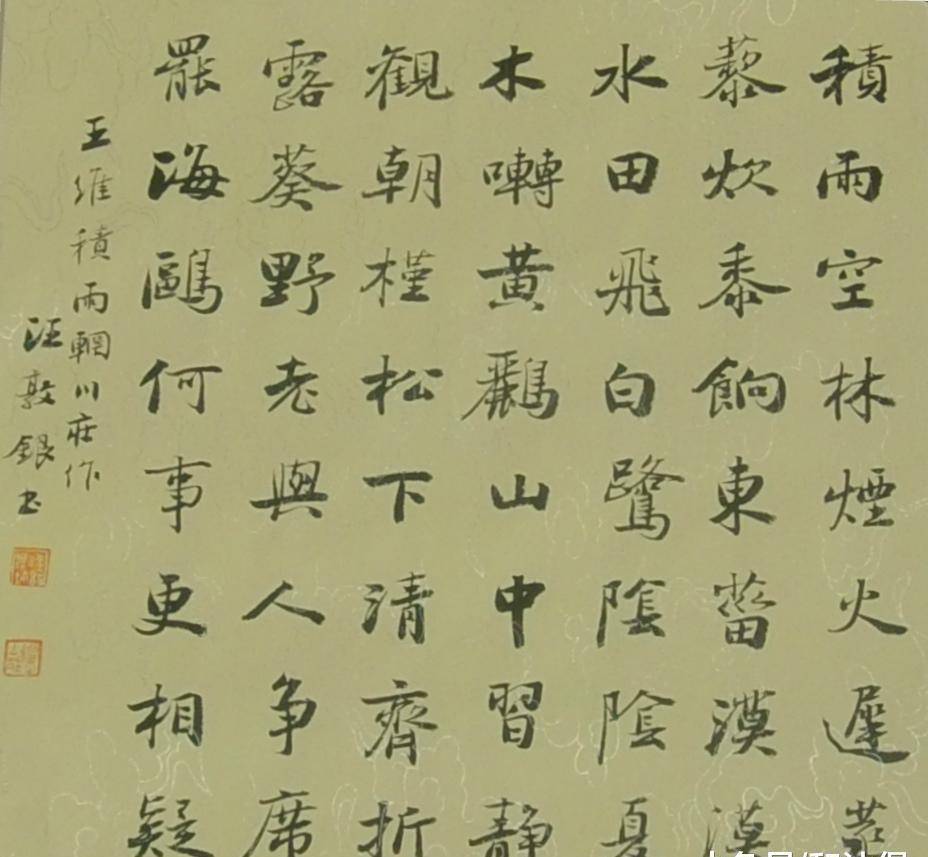 積雨空林煙火遲蒸
藜炊黍餉東菑漠漠
水田飛白鷺陰陰夏
木囀黃鸝山中習静
觀朝槿松下清齊折
露葵野老與人争席
罷海鷗何事更相疑
王維積雨輞川庄作
汪敦銀书